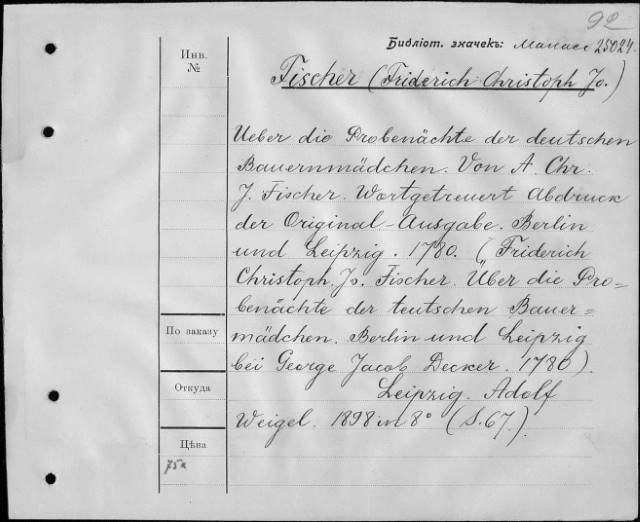 92
Библіот. значекъ: 25024.
Инв.
№
Fischer (Friderich Christoph Jo.)
Ueber die Probenächte der deutschen
Bauernmädchen. Von A. Chr.
J. Fischer. Wortgetreuert Abdruck
der Original-Ausgabe. Berlin
und Leipzig. 1780. („Friderich
Christoph. Jo. Fischer. Über die Pro=
benächte der teutschen Bauer=
mädchen. Berlin und Leipzig
bei George Jacob Decker. 1780).
Leipzig. Adolf
Weigel. 1898 in 8° (S. 67.)
По заказу
Откуда
Цѣна
75к